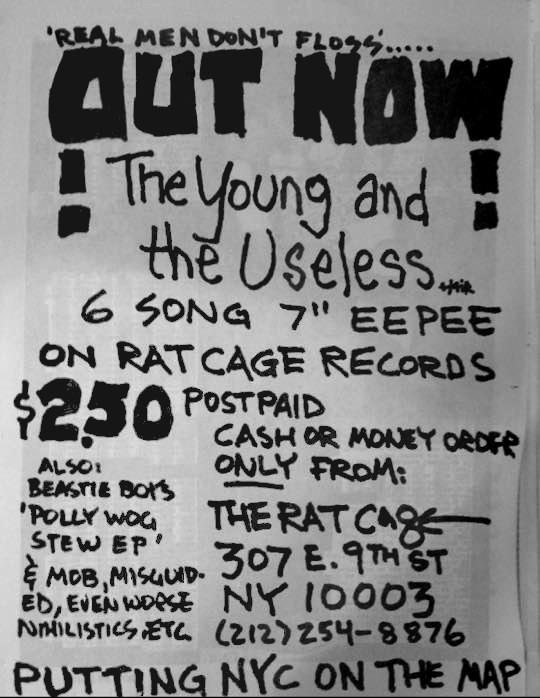 'REAL MEN DON'T FLOSS'.....
OUT NOW
! The Young and !
the Useless...
6 SONG 7" EEPEE
ON RAT CAGE RECORDS
$2.50 POSTPAID
CASH OR MONEY ORDER
ONLY FROM:
THE RAT CAGE
307 E. 9TH ST
NY 10003
(212) 254-8876
ALSO:
BEASTIE BOYS
'POLLY WOG
STEW EP'
& MOB, MISGUID-
ED, EVEN WORSE
NIHILISTICS, ETC
PUTTING NYC ON THE MAP